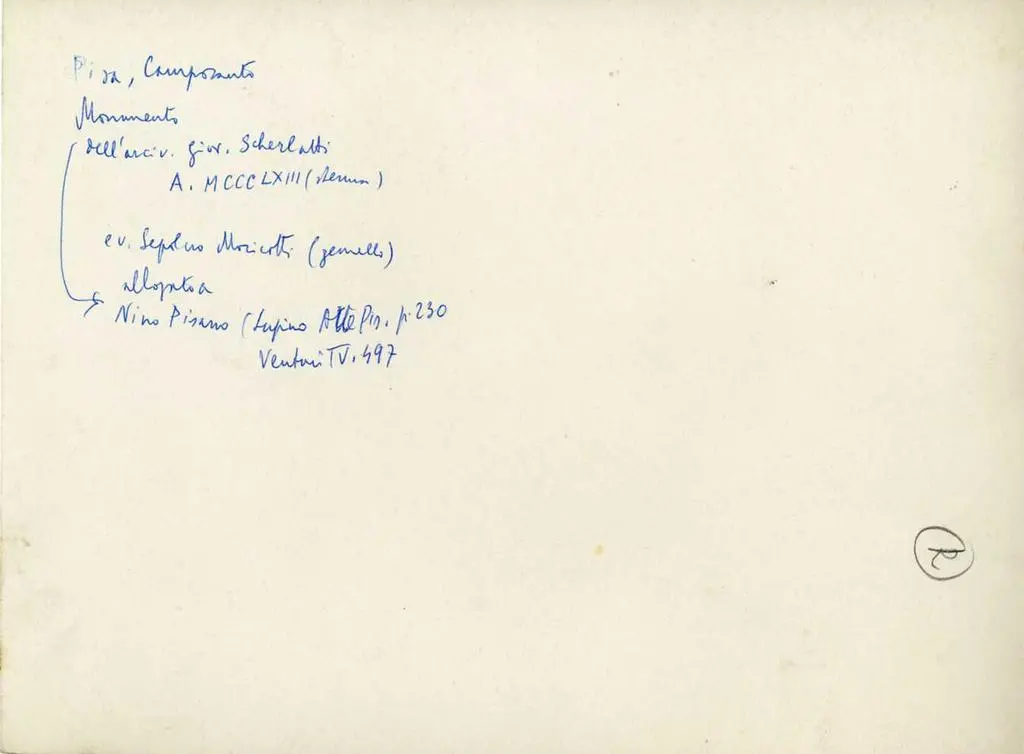 Pisa, Camposanto
Monumento
dell'arciv. Giov. Scherlatti
A. MCCCLXIII (stemma)
e v. Sepolcro Moricotti (gemello)
allogato a
Nino Pisano (Supino Arte Pis. p. 230
Venturi IV. 497
R